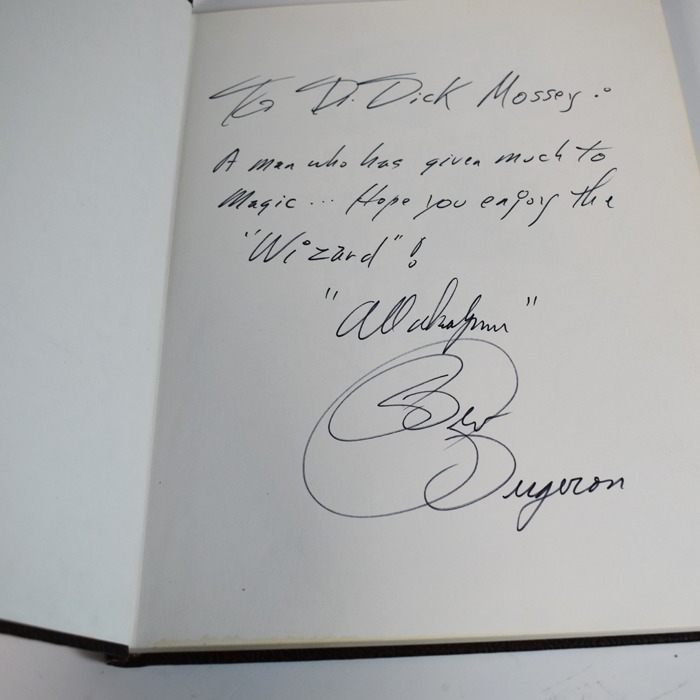 To D. Dick Mossey :
A man who has given much to
Magic ... Hope you enjoy the
"Wizard" !
"Allakazam"
Bev
Bergeron